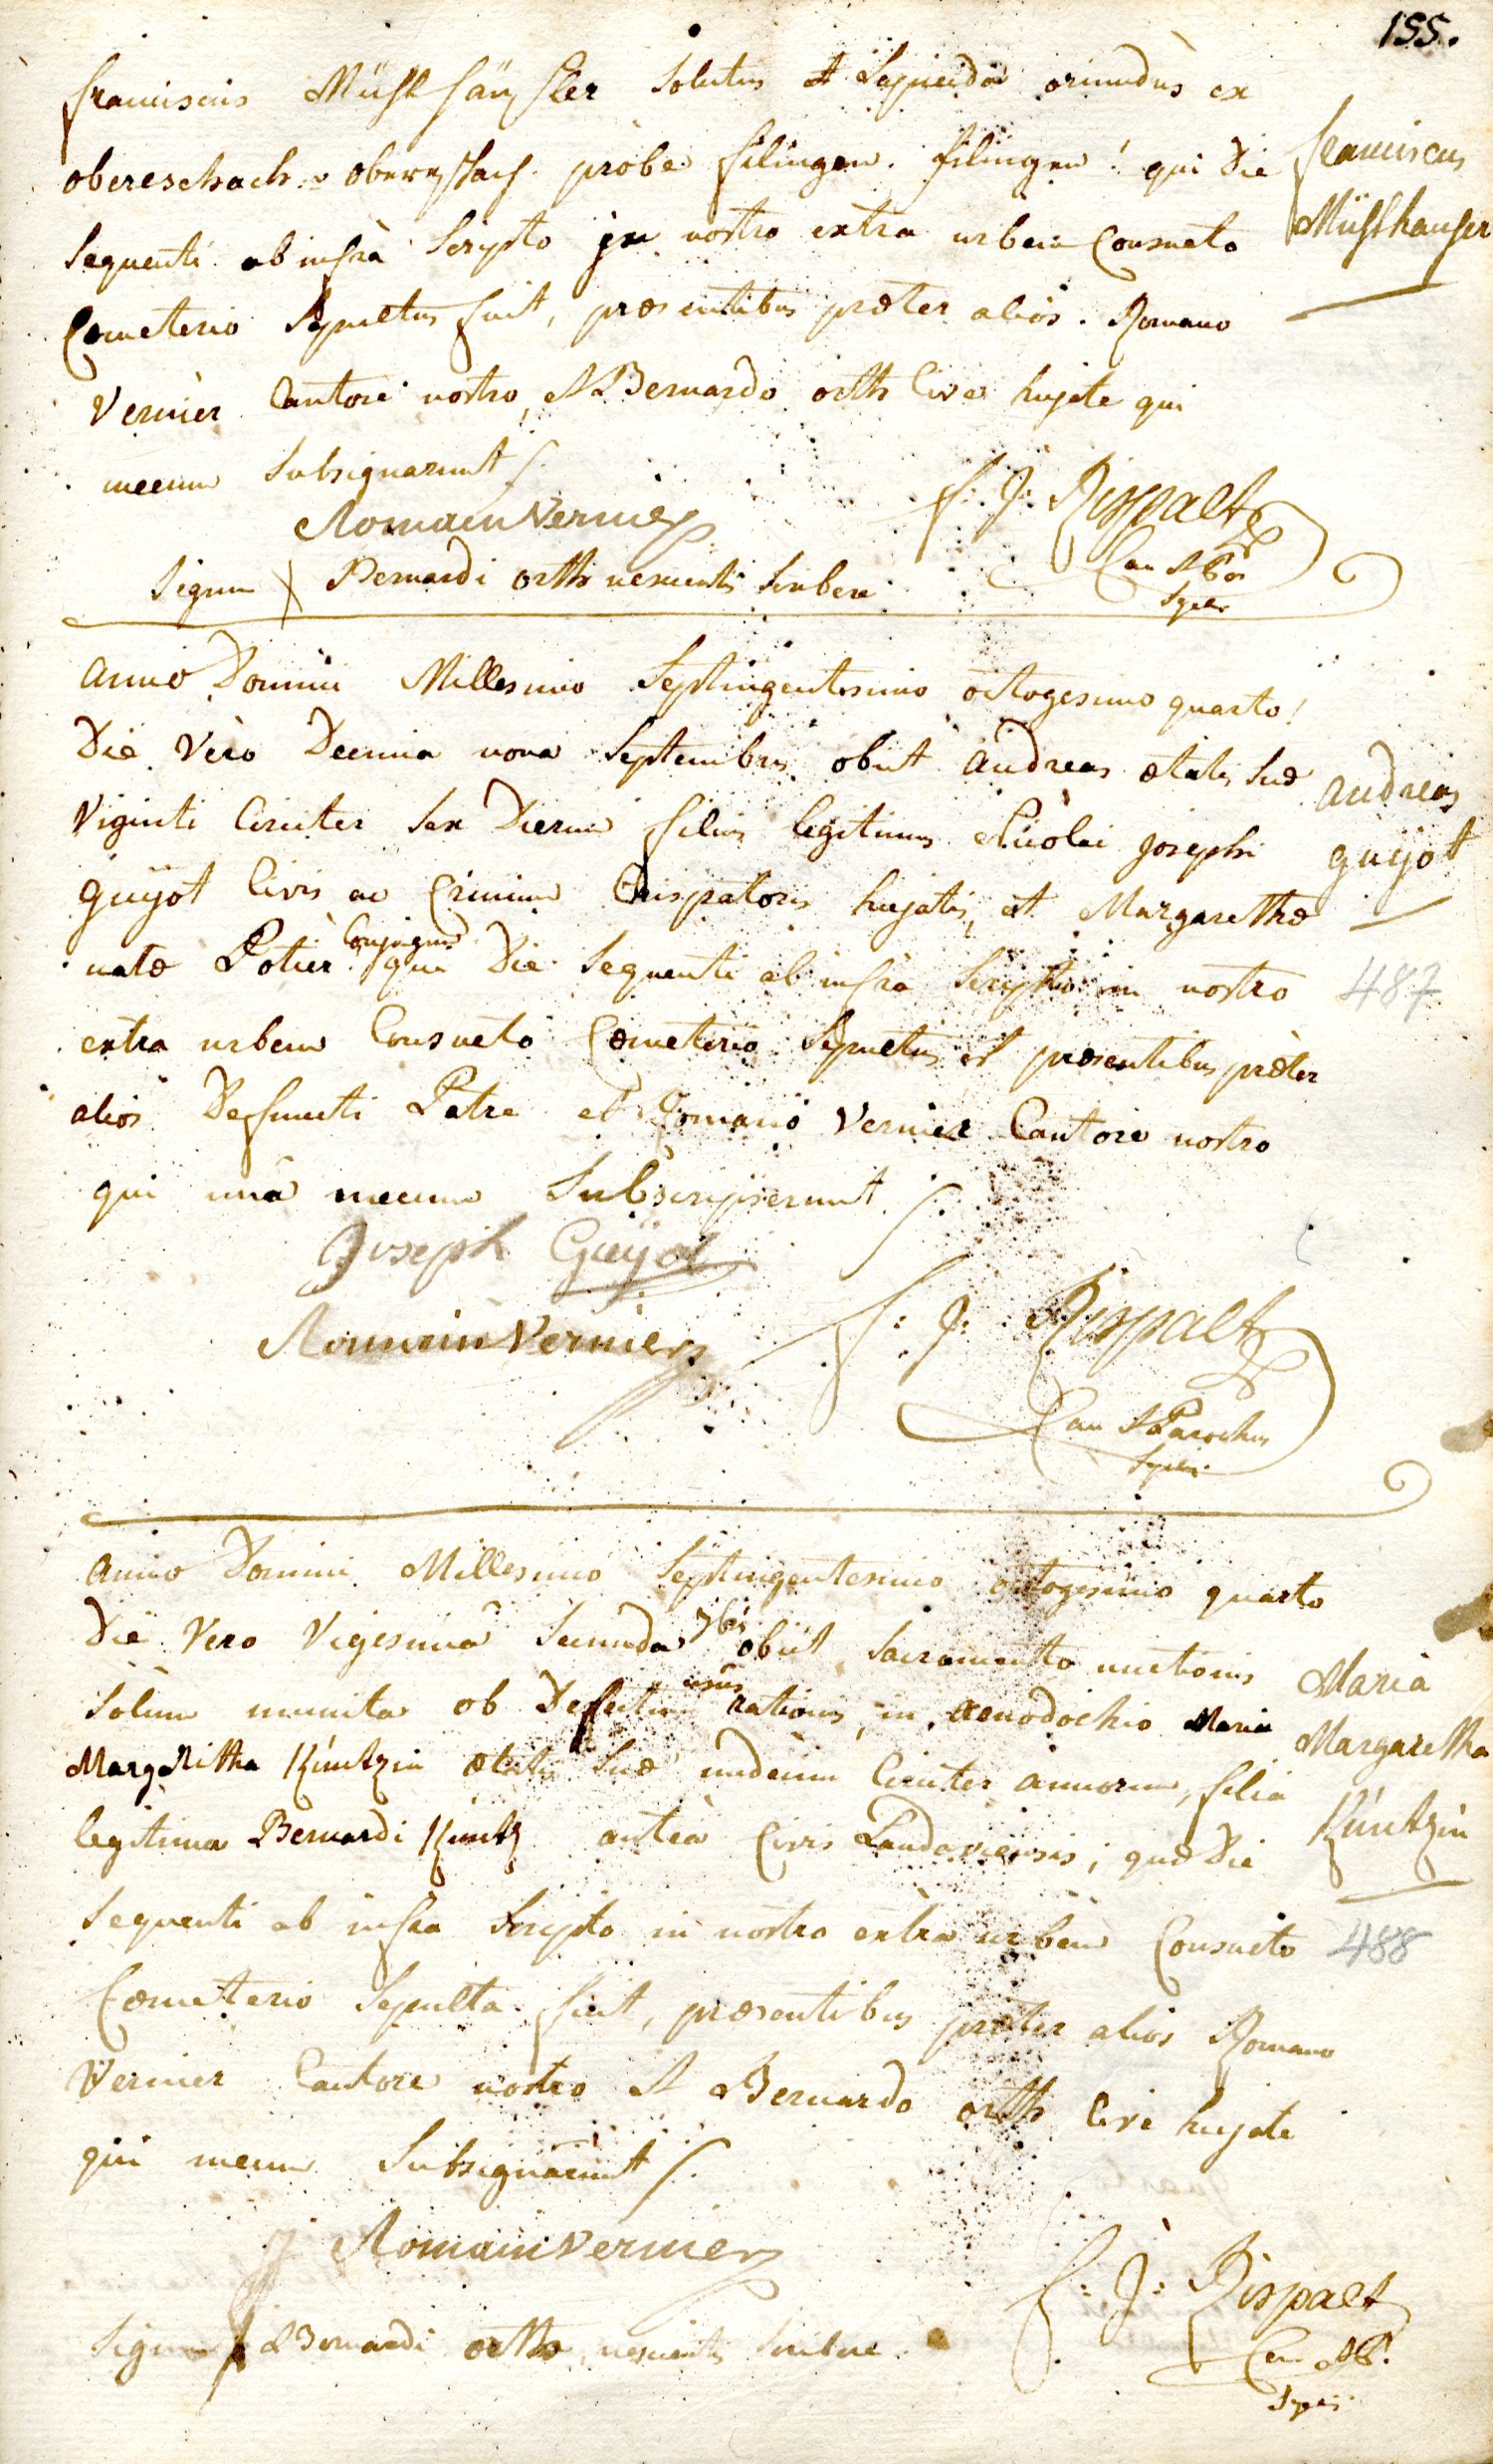 155.
franciscus Mühlhäußler solutus et Lapicida oriundus ex
obereschach v obereschach. probe filingen. filingen! qui die
sequenti ab infrà scripto in nostro extra urbem Consueto
Cœmeterio sepultus fuit, præsentibus præter aliòs. Romano
Vernier Cantore nostro, et Bernardo orth Cive hujate qui
mecum subsignarunt
franciscus
Mühlhauser
Romain Vernier
f: J: Rispalt
Can et Par
Signum Bernardi orth nescientis scribere
anno Domini Millesimo Septingentesimo octogesimo quarto!
Die Verò Decima nona Septembris obiit andreas ætatis suæ
Viginti Circiter sex Dierum filius legitimus Nicolai josephi
guÿot Civis ac Crinium Crispatoris hujatis, et Margarethæ
natæ Potier Conjugum qui Die sequenti ab infrà scripto in nostro
extra urbem Consueto Cœmeterio sepultus est præsentibus præter
alios Defuncti Patre et Romano Vernier Cantore nostro
qui unà mecum Subscripserunt
andreas
guÿot
487
Joseph Guÿot
Romain Vernier
f: J: Rispalt
Can et Parochus
anno Domini Millesimo Septingentesimo octogesimo quarto
Die Vero Vigesima Secunda 7bris obiit sacramento unctionis
sòlum munita ob Defectum usûs rationis, in Xenodochio Maria
Margaritha Küntzin ætatis suæ undecim Circiter annorum, filia
legitima Bernardi Küntz anteà Civis Landaviensis; quæ Die
sequenti ab infra scripto in nostro extra urbem Consueto
Cœmeterio sepulta fuit, præsentibus præter alios Romano
Vernier Cantore nostro et Bernardo orth Cive hujate
qui mecum subsignarunt
Maria
Margaretha
Küntzin
488
Romain Vernier
f: J: Rispalt
Can et P.
Signum Bernardi orth nescientis scribere